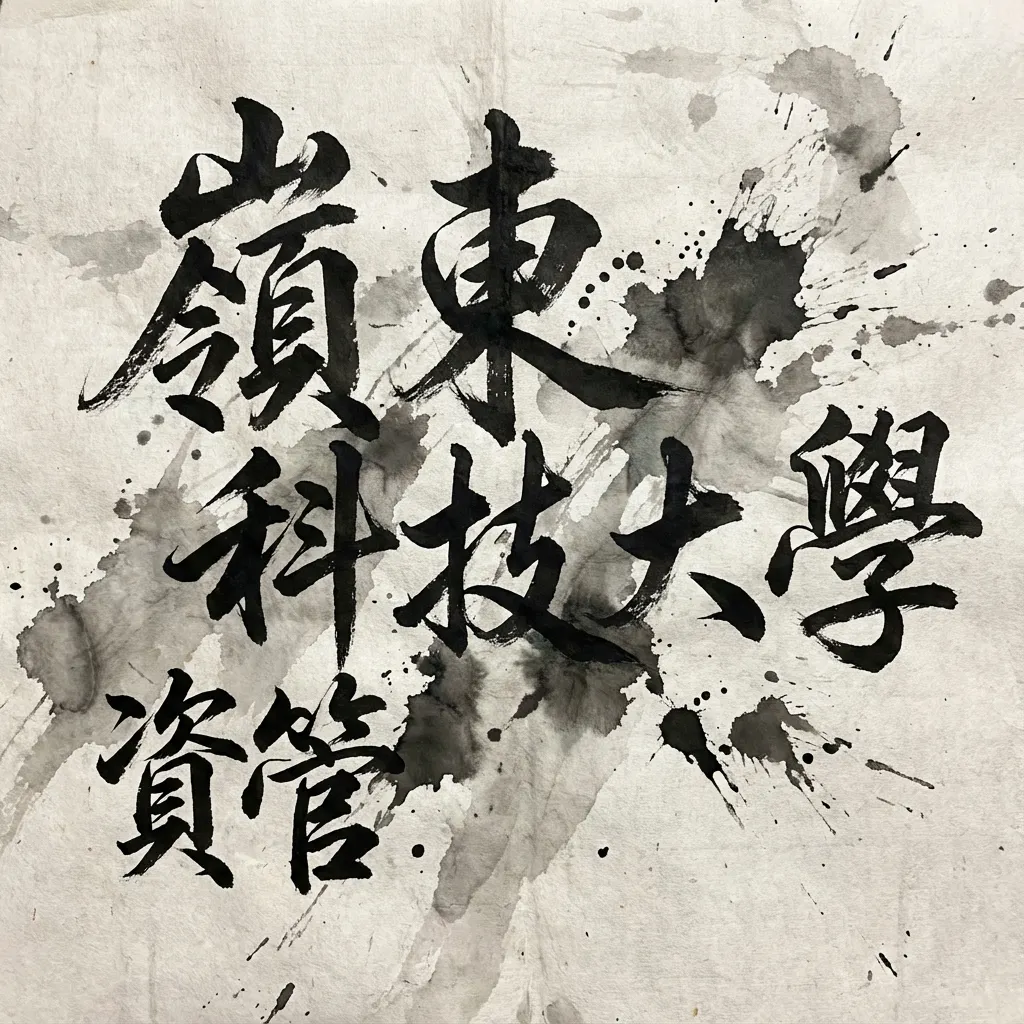 嶺東
科技大學
資管